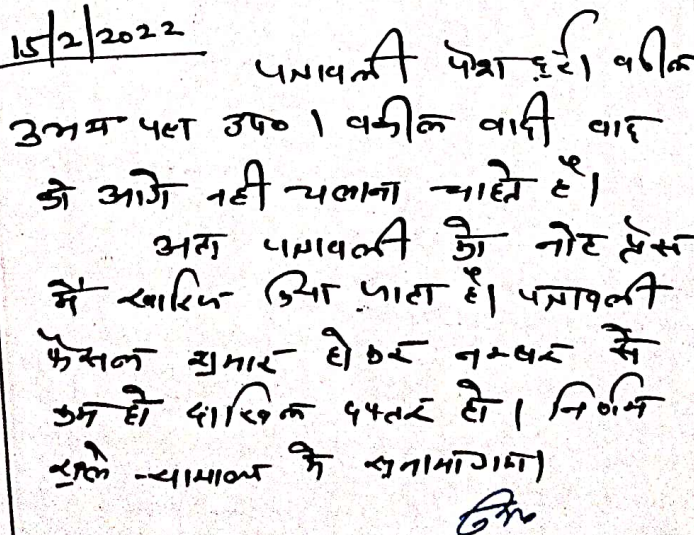 15/2/2022
पत्रावली पेश हुई। वकील
उभय पक्ष उप०। वकील वादी वाद
को आगे नही चलाना चाहते हैं।
अतः पत्रावली को नोट प्रेस
में खारिज किया जाता है। पत्रावली
फैसल शुमार होकर नम्बर से
कम हो दाखिल दफ्तर हो। निर्णय
खुले न्यायालय में सुनाया गया।